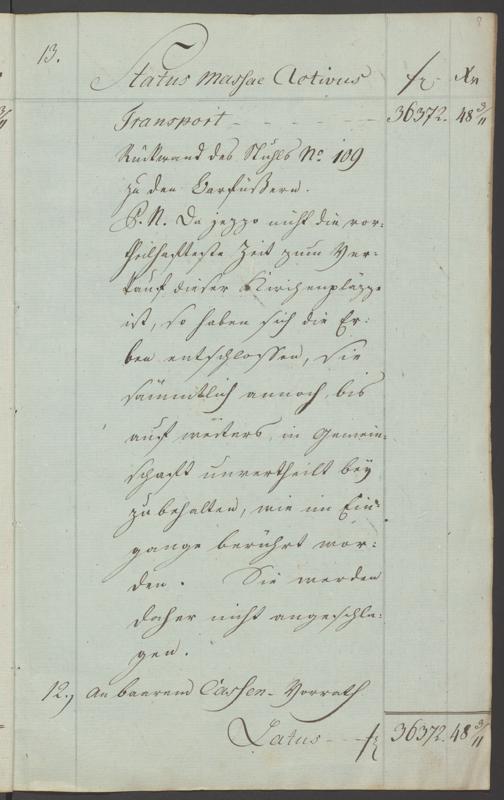 13.
Status massae Activus fl. Xr.
Transport - - - - - 36372. 48 3/11
Rückwand des Stuhls No. 109
zu den Barfüßern.
P. N. Da jezzo nicht die vor-
theilhafteste Zeit zum Ver-
kauf dieser Kirchenpläzze
ist, so haben sich die Er-
ben entschlossen, sie
sämmtlich annoch bis
auf weiters in Gemein-
schaft unvertheilt bey
zubehalten, wie im Ein-
gange berührt wor-
den. Sie werden
daher nicht angeschla-
gen.
12.) An baarem Cassen-Vorrath
Latus - - fl. 36372. 48 3/11